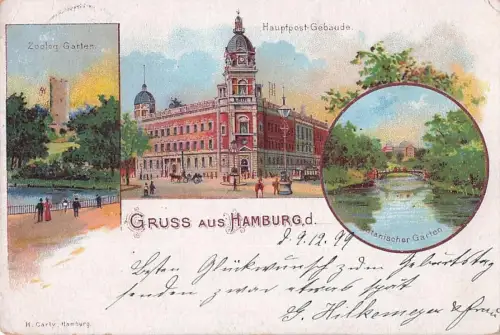 Zoolog. Garten.
Hauptpost-Gebäude.
Botanischer Garten
GRUSS AUS HAMBURG, d.
d. 9.12.99
Besten Glückwunsch zum Geburtstag
senden zwar etwas spät
G. Hilkomeyer & Frau
H. Carly, Hamburg.